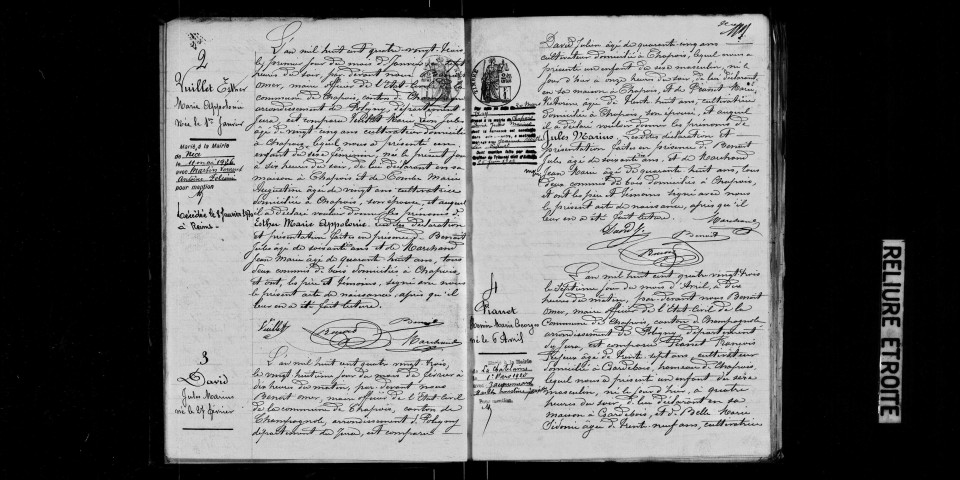 2
Vuillet Esther
Marie Appolonie
née le 1er Janvier
Marié à la Mairie
de Nice
le 11 mai 1926
avec
pour mention
Décédée le 8 Janvier
à Reims
L'an mil huit cent quatre-vingt-trois
le premier jour du mois de Janvier à
heures du soir, par devant nous
Omer, maire officier de l'Etat Civil
commune de Chapois, canton de
arrondissement de Poligny, département
Jura, est comparu Vuillet Marie Léon Jules
âgé de vingt cinq ans cultivateur domicilié
à Chapois, lequel nous a présenté un
enfant du sexe féminin, née le présent jour
à dix heures du soir, de lui déclarant en sa
maison à Chapois et de Marie
Augustine âgée de vingt ans cultivatrice
domiciliée à Chapois, son épouse, et auquel
il a déclaré vouloir donner les prénoms de
Esther Marie Appolonie. Lesdites déclaration
et présentation faites en présence de Benoit
Jules âgé de soixante ans et de Marchand
Jean Marie âgé de quarante huit ans, tous
deux commis de bois domiciliés à Chapois,
et ont, les père et témoins, signé avec nous
le présent acte de naissance, après qu'il
leur en a été fait lecture.
Vuillet
Benoit
Marchand
3
David
Jules Marius
né le 27 février
L'an mil huit cent quatre vingt trois,
le vingt huitième jour du mois de février à
dix heures du matin, par devant nous
Benoit Omer, maire officier de l'Etat Civil
de la commune de Chapois, canton de
Champagnole, arrondissement de Poligny
département du Jura, est comparu
David Julien âgé de quarante cinq ans
cultivateur domicilié à Chapois, lequel nous a
présenté un enfant du sexe masculin, né le
jour d'hier à onze heures du soir, de lui déclarant,
en sa maison à Chapois, et de Marie
Victorine âgée de trente huit ans, cultivatrice
domiciliée à Chapois, son épouse, et auquel
il a déclaré vouloir donner les prénoms de
Jules Marius. Lesdites déclaration et
présentation faites en présence de Benoit
Jules âgé de soixante ans, et de Marchand
Jean Marie âgé de quarante huit ans, tous
deux commis de bois domiciliés à Chapois,
et ont les père et témoins signé avec nous
le présent acte de naissance, après qu'il
leur en a été fait lecture.
Marchand
David
Benoit
4
né le 6 Avril
1920
L'an mil huit cent quatre vingt trois
le septième jour du mois d'Avril, à dix
heures du matin, par devant nous Benoit
Omer, maire officier de l'Etat Civil de la
Commune de Chapois, canton de Champagnole
arrondissement de Poligny, département
du Jura, est comparu François
âgé de trente sept ans, cultivateur
domicilié à hameau de Chapois,
lequel nous a présenté un enfant du sexe
masculin, né le à quatre
heures du soir, de lui déclarant en sa
maison à et de Belle Marie
Sidonie âgée de trente neuf ans, cultivatrice
RELIURE ETROITE